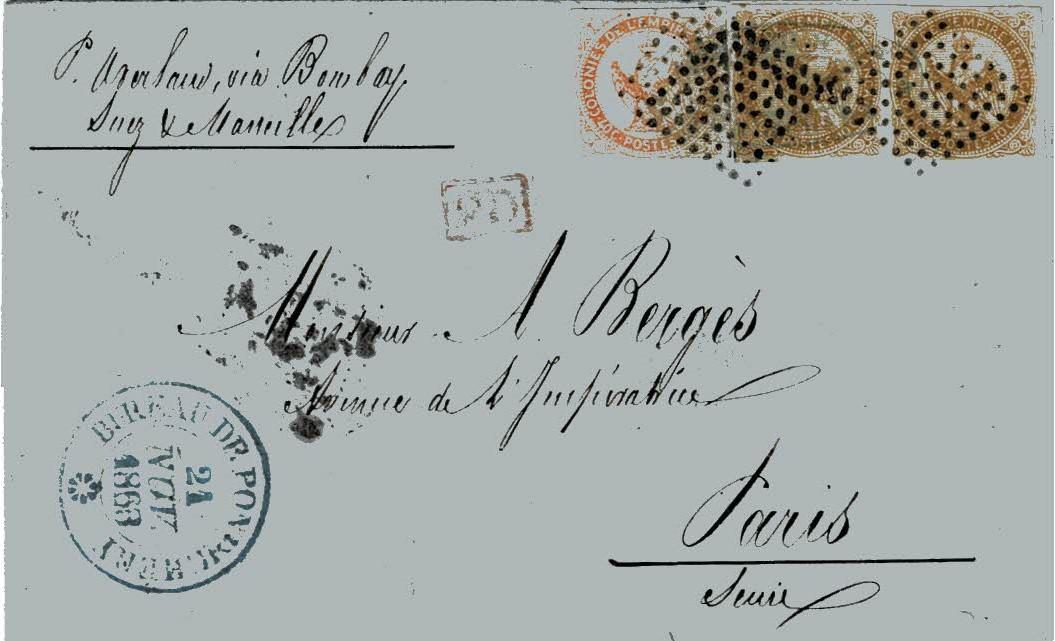 P. Overland, via Bombay
Suez & Marseilles
COLONIES DE L'EMPIRE
POSTES
EMPIRE FRANC
POSTES
EMPIRE FRANC
POSTES
PD
Monsieur A. Bergès
Avenue de l'Impératrice
Paris
Seine
BUREAU DE PONDICHERY
21
1868